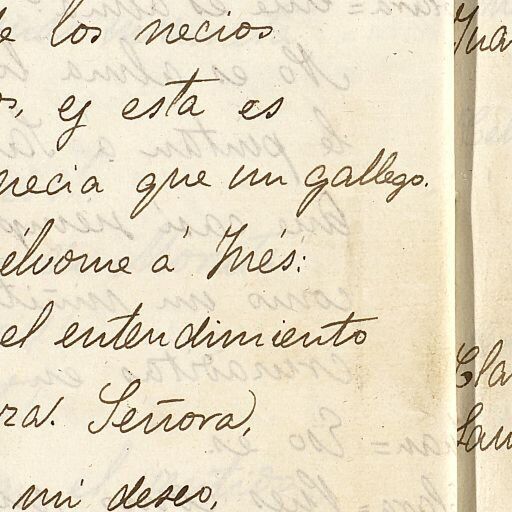 de los necios
os, y esta es
necia que un gallego.
élvome á Inés:
el entendimiento
Señora,
mi deseo,